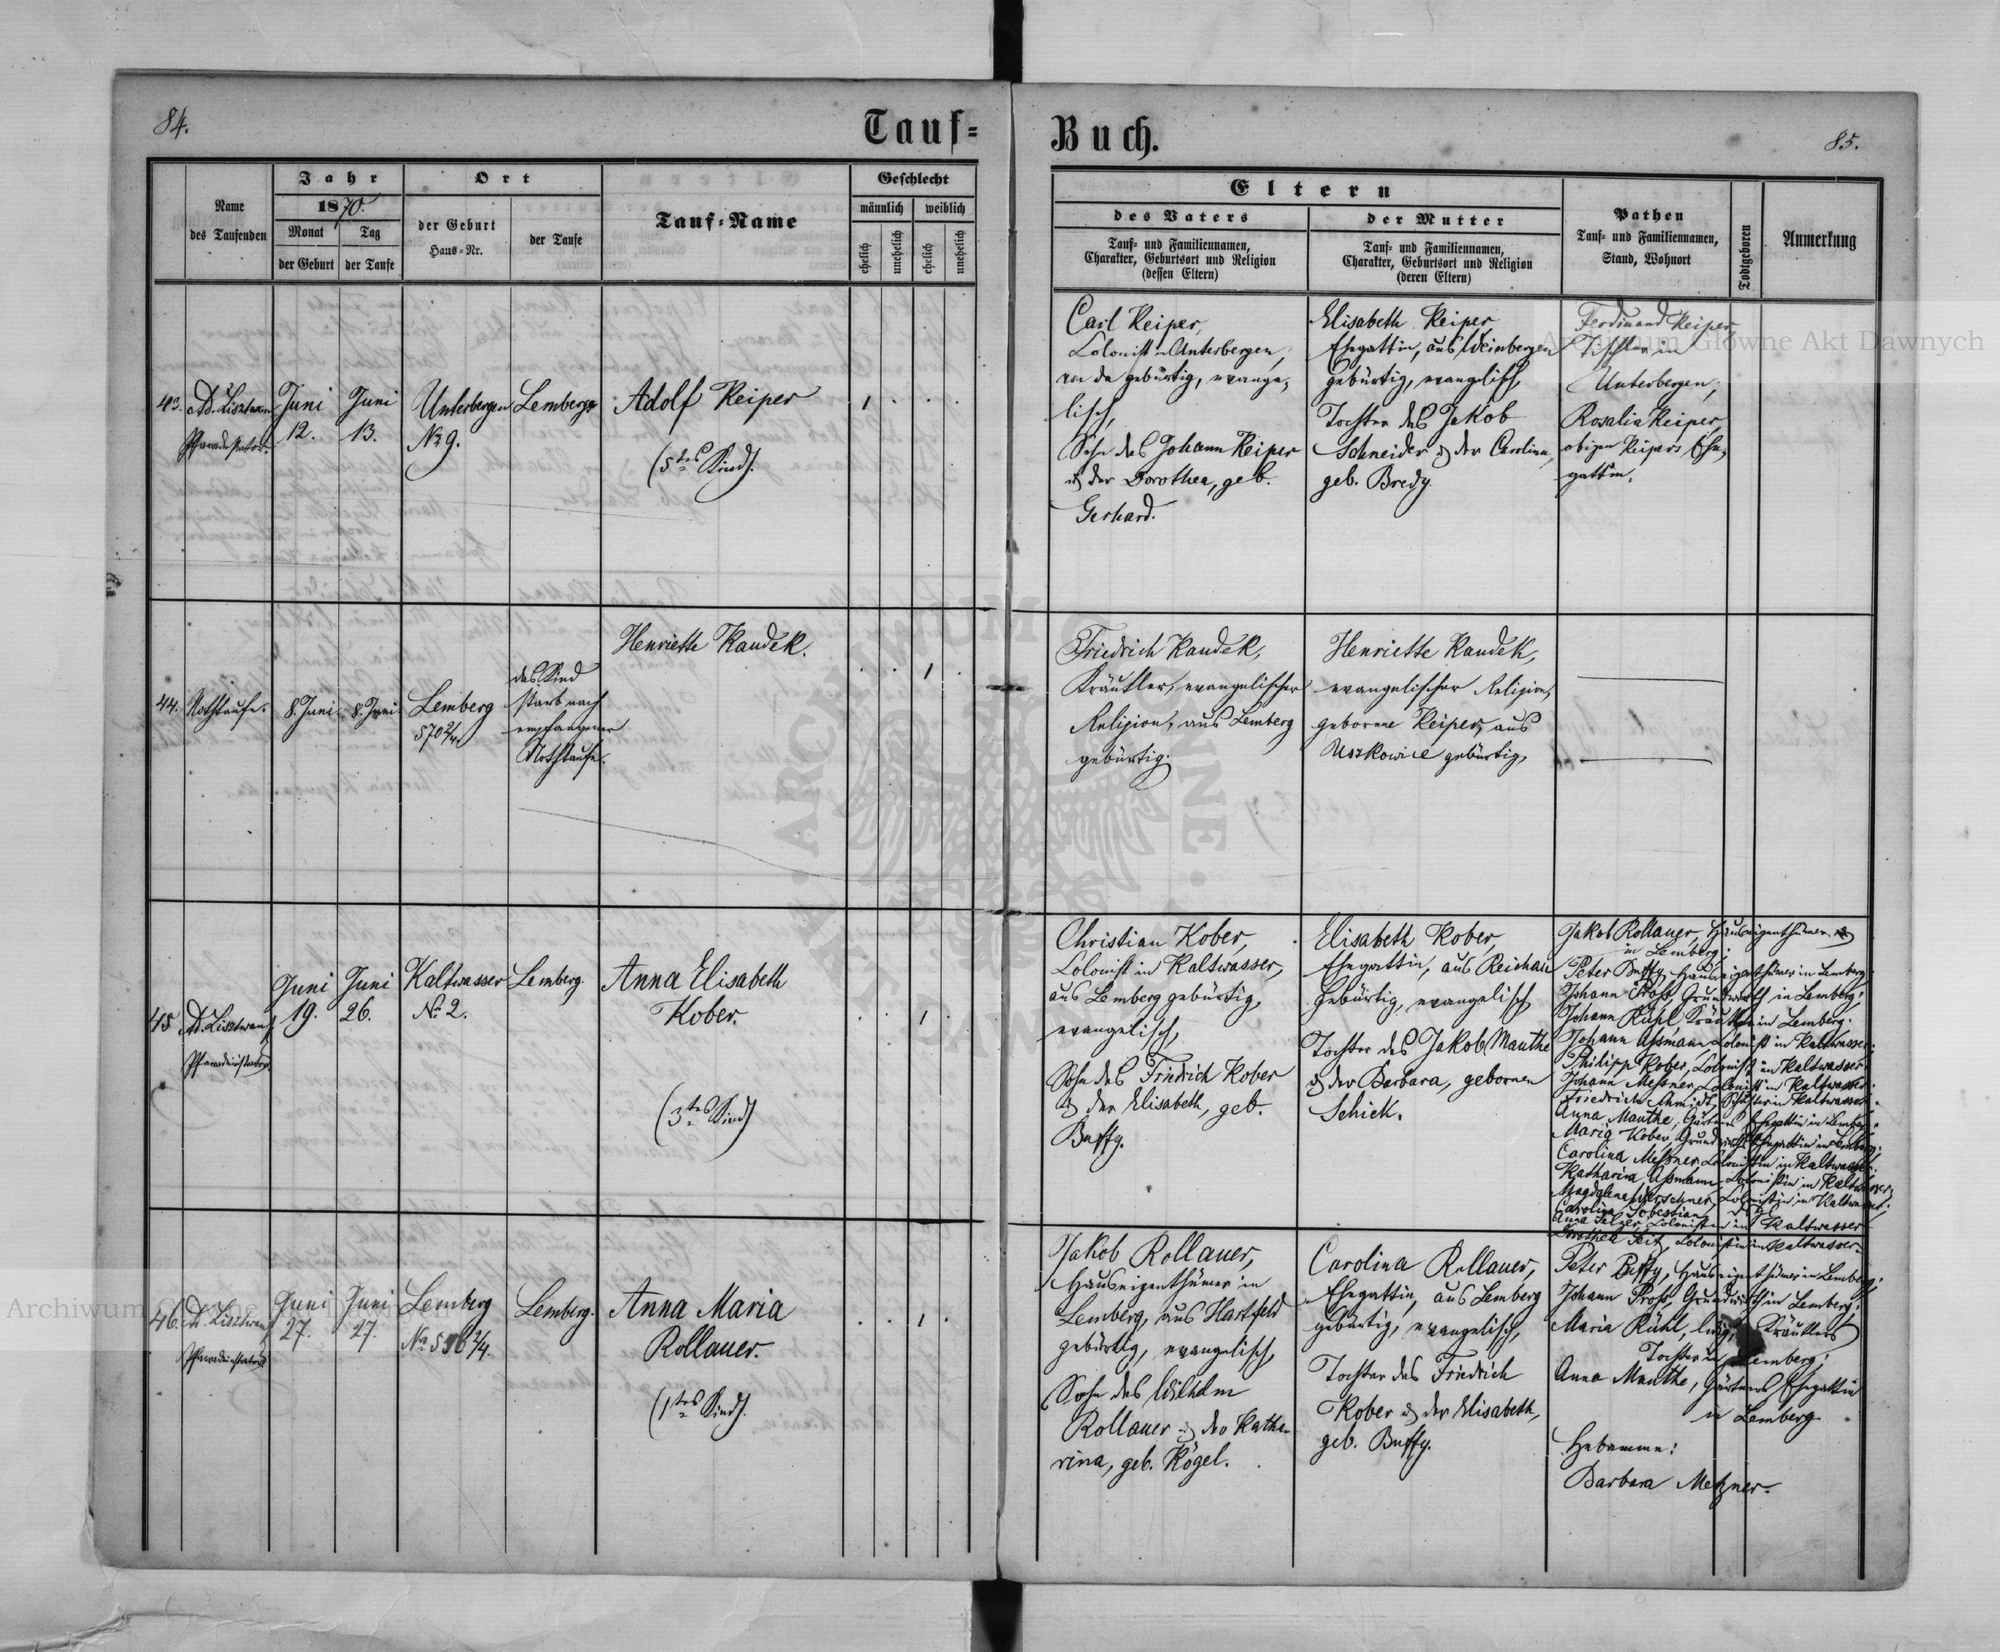 84.
Tauf=
Buch.
85.
Name
des Taufenden
Jahr
1870.
Monat
der Geburt
Tag
der Taufe
Ort
der Geburt
Haus=Nr.
der Taufe
Tauf=Name
Geschlecht
männlich
weiblich
ehelich
unehelich
ehelich
unehelich
Eltern
des Vaters
Tauf= und Familiennamen,
Charakter, Geburtsort und Religion
(dessen Eltern)
der Mutter
Tauf= und Familiennamen,
Charakter, Geburtsort und Religion
(deren Eltern)
Pathen
Tauf= und Familiennamen,
Stand, Wohnort
Todtgeboren
Anmerkung
43.
Juni
12.
Juni
13.
Unterbergen
No 9.
Lemberg
Adolf Reiper
(5tes Kind).
Carl Reiper,
Colonist in Unterbergen,
von da gebürtig, evange=
lisch,
Sohn des Johann Reiper
& der Dorothea, geb.
Gerhard.
Elisabeth Reiper
Ehegattin, aus Weinbergen
gebürtig, evanglisch,
Tochter des Jakob
Schneider & der Carolina,
geb. Bredy
Ferdinand Reiper
Tischler in
Unterbergen,
Rosalia Reiper,
obigen Reipers Ehe=
gattin.
44.
Nothtaufe.
8. Juni.
8. Juni.
Lemberg
570 2/4
das Kind
starb nach
empfangener
Nothtaufe.
Henriette Kaudek.
Friedrich Kaudek,
Kräutler, evangelischer
Religion, aus Lemberg
gebürtig.
Henriette Kaudek,
evangelischer Religion,
geborene Reiper, aus
Uszkowice gebürtig,
45
Juni
19.
Juni
26.
Kaltwasser
No 2.
Lemberg.
Anna Elisabeth
Kober.
(3tes Kind)
Christian Kober,
Colonist in Kaltwasser,
aus Lemberg gebürtig,
evangelisch,
Sohn des Friedrich Kober
& der Elisabeth, geb.
Buffy.
Elisabeth Kober,
Ehegattin, aus Reichau
gebürtig, evangelisch,
Tochter des Jakob Mauthe
& der Barbara, gebornen
Schick.
Jakob Rollauer, Hauseigenthümer
in Lemberg;
Peter Buffy, Hauseigenthümer in Lemberg;
Johann Proß, Grundwirth in Lemberg;
Johann Rühl, Kräutler in Lemberg.
Johann Aßmann, Colonist in Kaltwasser;
Philipp Kober, Colonist in Kaltwasser;
Johann Meßner, Colonist in Kaltwasser;
Friedrich Schmidt, in Kaltwasser.
Anna Mauthe, Gärtners Ehegattin in Lemberg.
Maria Kober, Grundwirths Ehegattin in Lemberg;
Carolina Meßner, Colonistin in Kaltwasser.
Katharina Aßmann, Colonistin in Kaltwasser;
Magdalena Colonistin in Kaltwasser;
Carolina Sebestian,
Anna Colonistin in Kaltwasser
Dorothea Colonistin in Kaltwasser.
46.
Juni
27.
Juni
27.
Lemberg
No 2/4.
Lemberg.
Anna Maria
Rollauer.
(1tes Kind).
Jakob Rollauer,
Hauseigenthümer in
Lemberg, aus Hartfeld
gebürtig, evangelisch,
Sohn des Wilhelm
Rollauer & der Katha=
rina, geb. Kögel.
Carolina Rollauer,
Ehegattin, aus Lemberg
gebürtig, evangelisch,
Tochter des Friedrich
Kober & der Elisabeth,
geb. Buffy.
Peter Buffy, Hauseigenthümer in Lemberg;
Johann Proß, Grundwirth in Lemberg;
Maria Rühl, Kräutlers
Tochter in Lemberg;
Anna Mauthe, Gärtners Ehegattin
in Lemberg.
Hebamme:
Barbara Metzner.
Archiwum Główne Akt Dawnych
Archiwum Główne